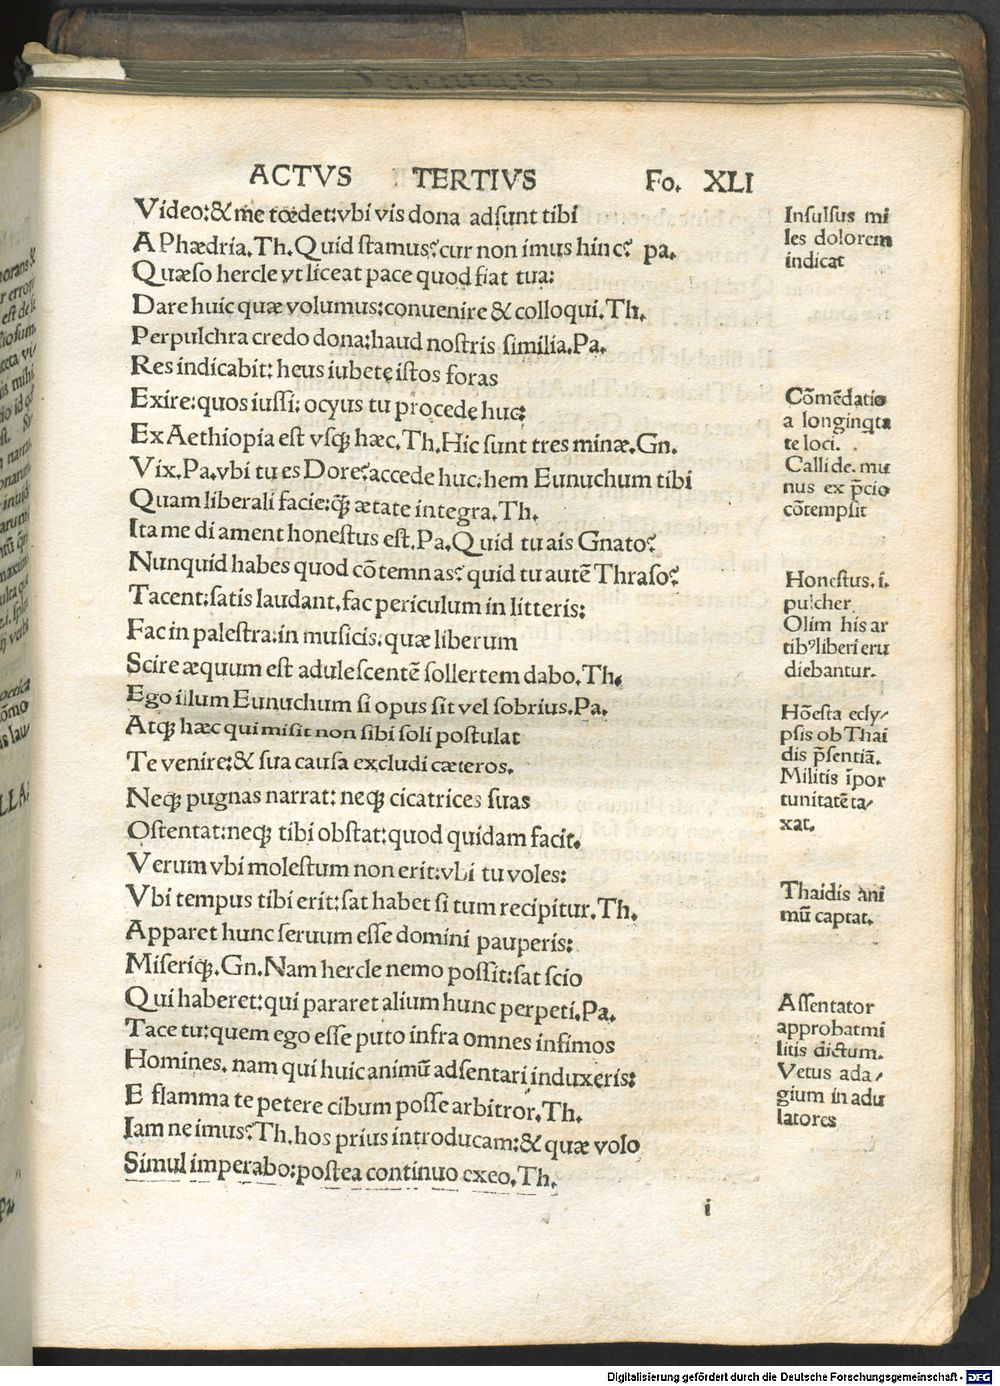 ACTVS TERTIVS Fo. XLI
Video:& me tœdet:vbi vis dona adsunt tibi
A Phædria.Th.Quid stamus?cur non imus hinc? pa.
Quæso hercle vt liceat pace quod fiat tua:
Dare huic quæ volumus:conuenire & colloqui.Th.
Perpulchra credo dona:haud nostris similia.Pa.
Res indicabit: heus iubete istos foras
Exire:quos iussi: ocyus tu procede huc:
Ex Aethiopia est vsqꝫ hæc.Th.Hic sunt tres minæ.Gn.
Vix.Pa.vbi tu es Dore?accede huc:hem Eunuchum tibi
Quam liberali facie:q̃ꝫ ætate integra.Th.
Ita me di ament honestus est.Pa.Quid tu ais Gnato?
Nunquid habes quod cõtemnas? quid tu autẽ Thraso?
Tacent:satis laudant.fac periculum in litteris:
Fac in palestra:in musicis:quæ liberum
Scire æquum est adulescentẽ sollertem dabo.Th.
Ego illum Eunuchum si opus sit vel sobrius.Pa.
Atqꝫ hæc qui misit non sibi soli postulat
Te venire:& sua causa excludi cæteros.
Neqꝫ pugnas narrat: neqꝫ cicatrices suas
Ostentat:neqꝫ tibi obstat:quod quidam facit.
Verum vbi molestum non erit:vbi tu voles:
Vbi tempus tibi erit:sat habet si tum recipitur.Th.
Apparet hunc seruum esse domini pauperis:
Miseriqꝫ.Gn.Nam hercle nemo possit:sat scio
Qui haberet:qui pararet alium hunc perpeti.Pa.
Tace tu:quem ego esse puto infra omnes infimos
Homines. nam qui huic animũ adsentari induxeris:
E flamma te petere cibum posse arbitror.Th.
Iam ne imus?Th.hos prius introducam:& quæ volo
Simul imperabo:postea continuo exeo.Th.
i
Insulsus mi
les dolorem
indicat
Cõmẽdatio
a longinqta
te loci.
Callide. mu
nus ex p̃cio
cõtempsit
Honestus.i.
pulcher
Olim his ar
tibꝰliberi eru
diebantur.
Hõesta ecly⸗
psis ob Thai
dis p̃sentiã.
Militis ĩpor
tunitatẽ ta⸗
xat.
Thaidis ani
mũ captat.
Assentator
approbat mi
litis dictum.
Vetus ada⸗
gium in adu
latores
Digitalisierung gefördert durch die Deutsche Forschungsgemeinschaft - DFG